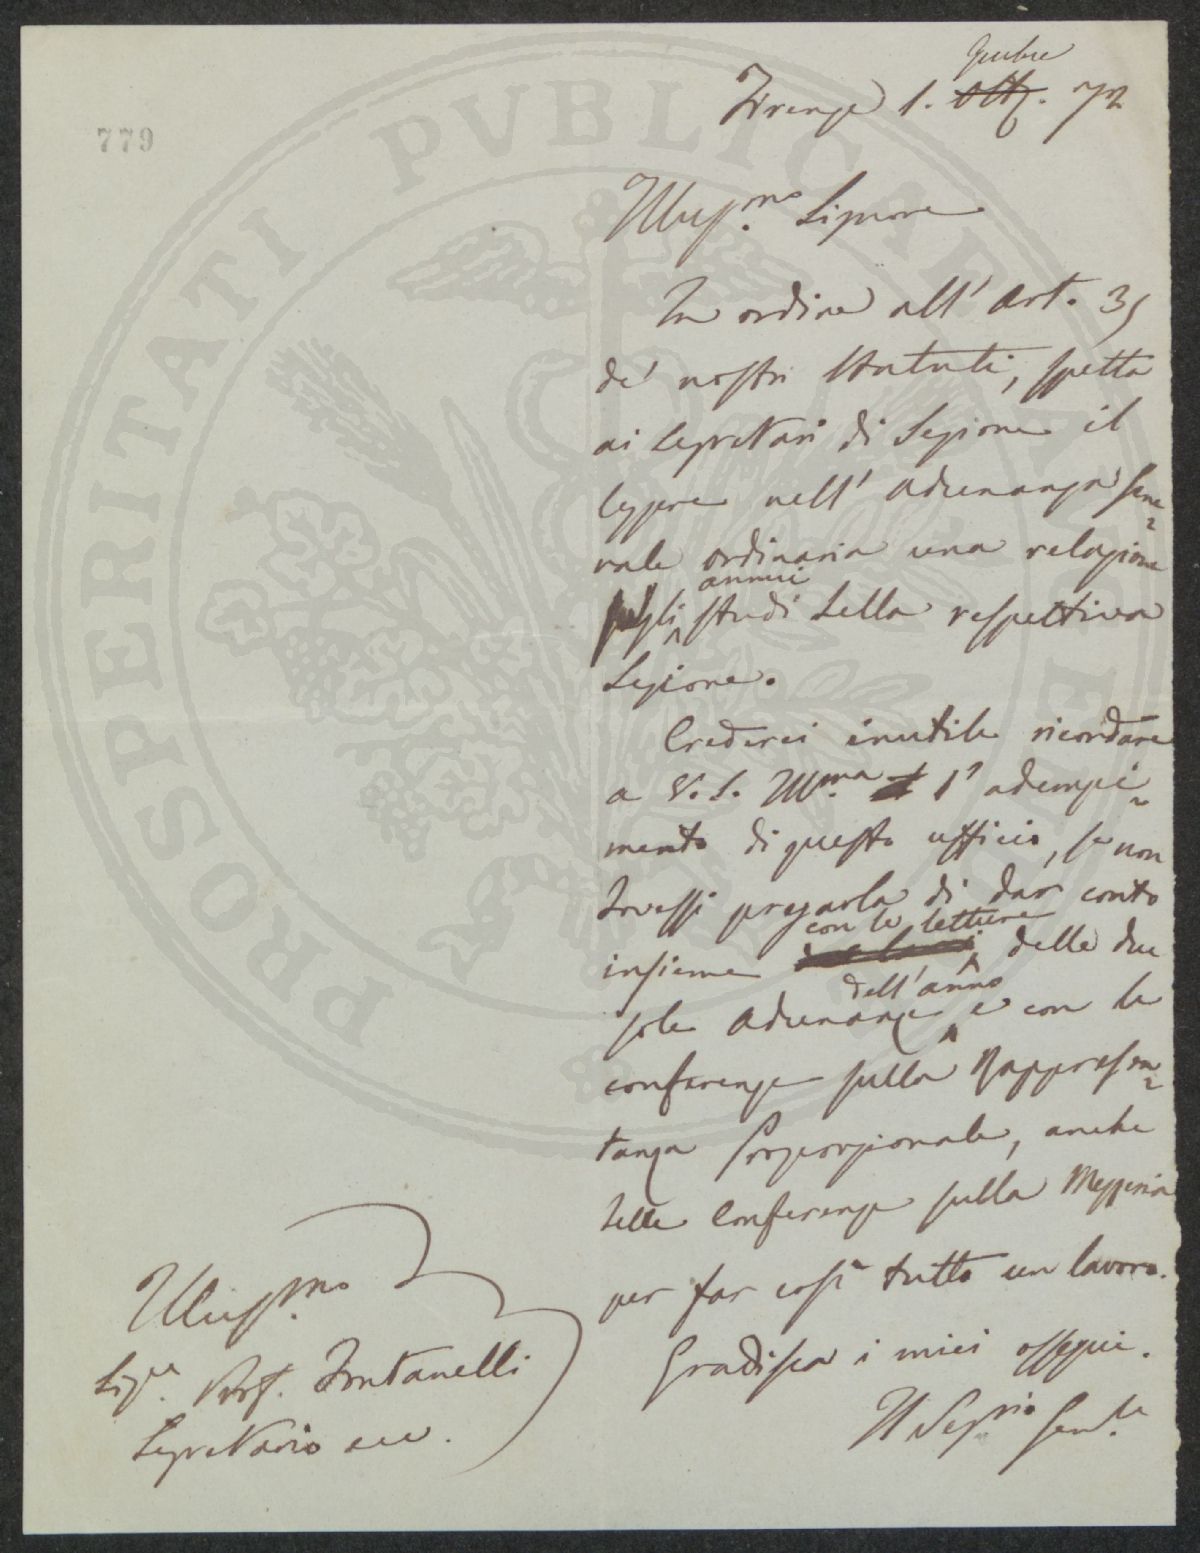 779
9mbre
Firenze 1. Ott. 72
Illus.mo Signore
In ordine all' Art. 35
de' nostri Statuti, spetta
ai Segretari di Sezione il
leggere nell' Adunanza Gene=
rale ordinaria una relazione
annui
sugli studi della respettiva
Sezione.
Crederei inutile ricordare
a V. S. Ill.ma l' adempi=
mento di questo ufficio, se non
dovessi pregarla di dar conto
con le letture
insieme delle due
dell'anno
sole Adunanze e con le
conferenze sulla Rappresen=
tanza Proporzionale, anche
delle Conferenze sulla Mezzeria
per far così tutto un lavoro.
Gradisca i miei ossequi.
Il Seg.rio Gen.le
Illus.mo
Sig.re Prof. Fontanelli
Segretario ecc.
PROSPERITATI PVBLICAE AVGENDAE